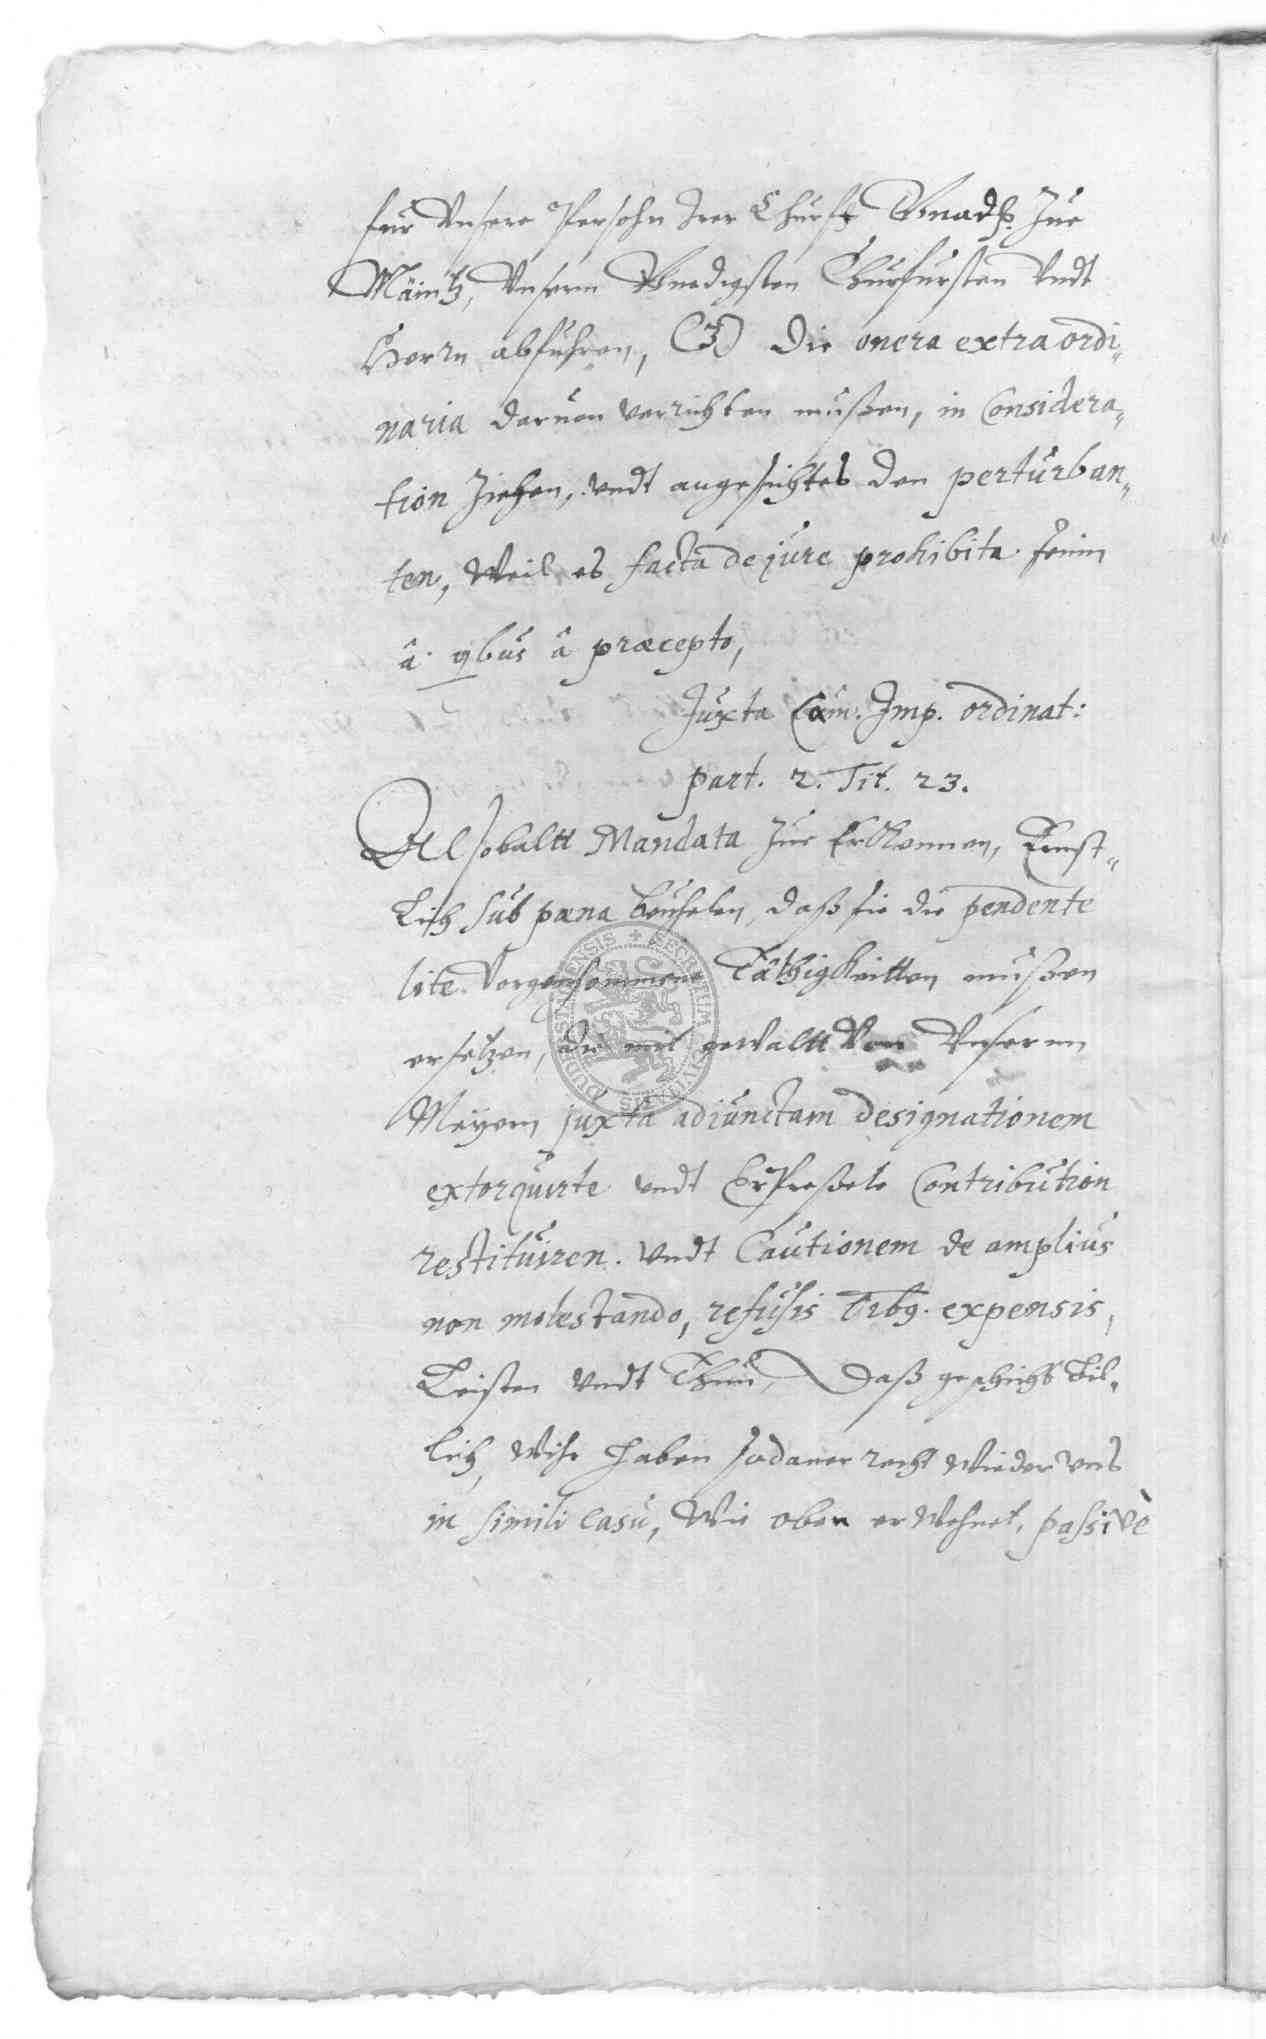 für Vnsere Persohn Irer Churfl Gnadß. Zue
Mäintz, Vnserm Gnedigsten Churfursten Vndt
Herrn abfuhren, (3) Die onera extraordi„
naria daruon verrichten mußen, in Considera„
tion Ziehen, vndt angesichtes den perturban„
ten, Weil es facta de jure prohibita seinn
â qbus â præcepto,
Juxta Cam. Imp. ordinat:
part. 2. Tit. 23.
Alsobaltt Mandata Zue Erkhennen, Ernst„
Lich sub pæna beuhelen, daß sie die pendente
lite Vorgenhommene Täthigkeitten mußen
ersetzen, die mit gewaltt Von Vnserm
Meyern juxta adiunctam designationem
extorquirte vndt Erpreßete Contribution
restituiren. Vndt Cautionem de amplius
non molestando, refusis expensis,
Leisten Vndt Thun, Daß geschicht Bil„
lich, Wihr haben sodaner recht wieder vns
in simili casu, Wie oben erwehnet, passivè